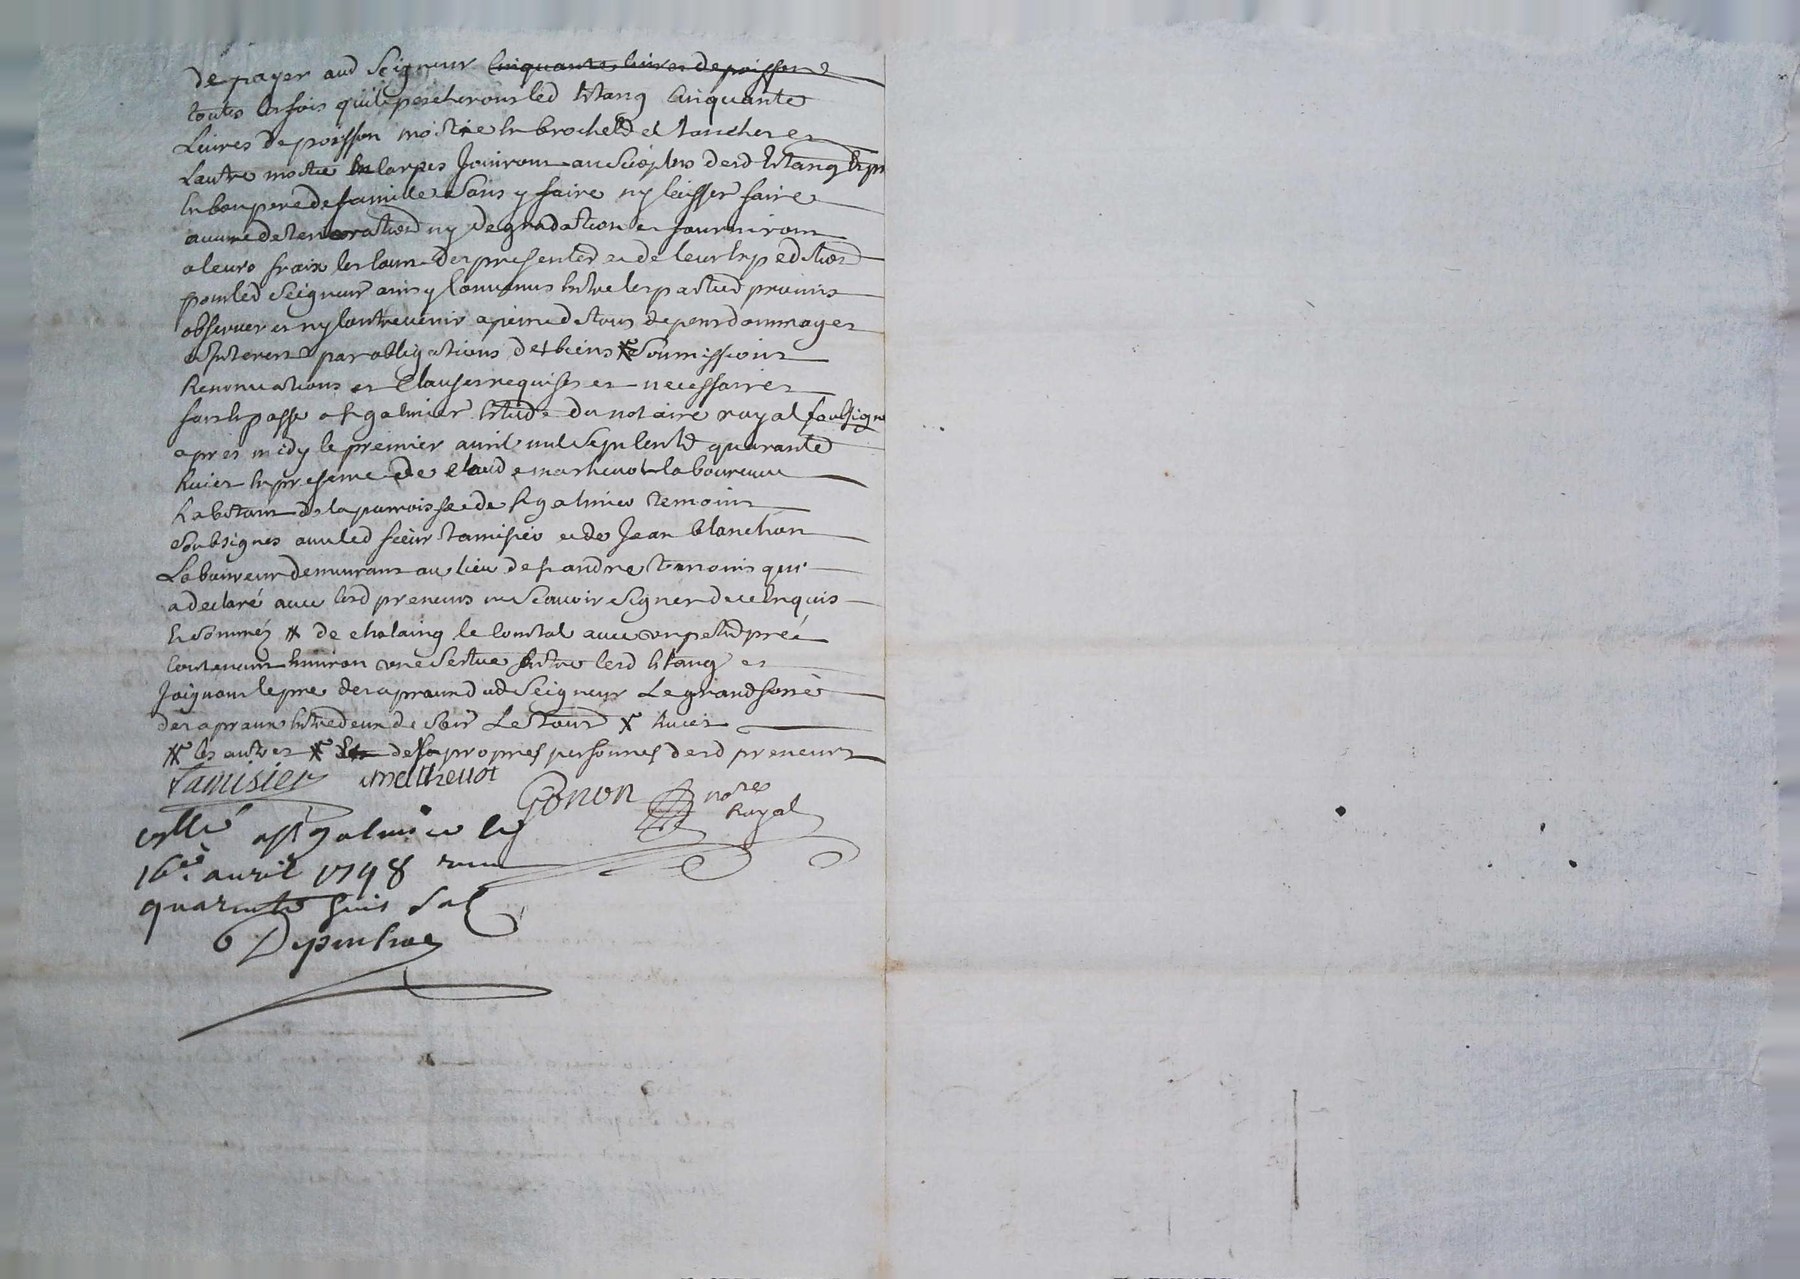 de payer aud Seigneur Cinquante livres de poisson
toutes les fois quil pescherons led Estang Cinquante
Livres de poisson moitie en brochetd et tanches et
Lautre moitie en Carpes Jouiront au Surplus desd Estang
En bon pere de famille Sans y faire ny laisser faire
aucune deterioration ny degradation et fourniront
a leurs fraix les des presented et de leur Expedition
pour led Seigneur ainsy Convenus Entre les partied promis
observer et ny Contrevenir a peine de tous depens dommages
et Interest par obligations de biens Soumissions
Renonciations et Clauses requises et necessaires
fait et passe a St galmier Estude du notaire royal soubsigne
apres midy le premier avril mil Sept Centd quarante
huict En presence de Claude matheuot laboureur
habitant de la parroisse de St galmier temoins
Soubsignes avec led Sieur tamisier et de Jean blanchon
Laboureur demeurant au lieu de St andre temoins qui
a declaré avec lesd preneurs ne Scavoir Signer de ce Enquis
et Sommés de chalaing le Comtal avec un petid pré
Contenant Environ une Entre lesd Estang et
Joignant le pre des dud Seigneur Le grand
des Entre deux de Soir huict
les autres de propres personnes desd preneurs
Tamisier matheuot
Gonon nore
Royal
Cllé a St galmier le
16e avril 1748 recu
quarente huit Sol